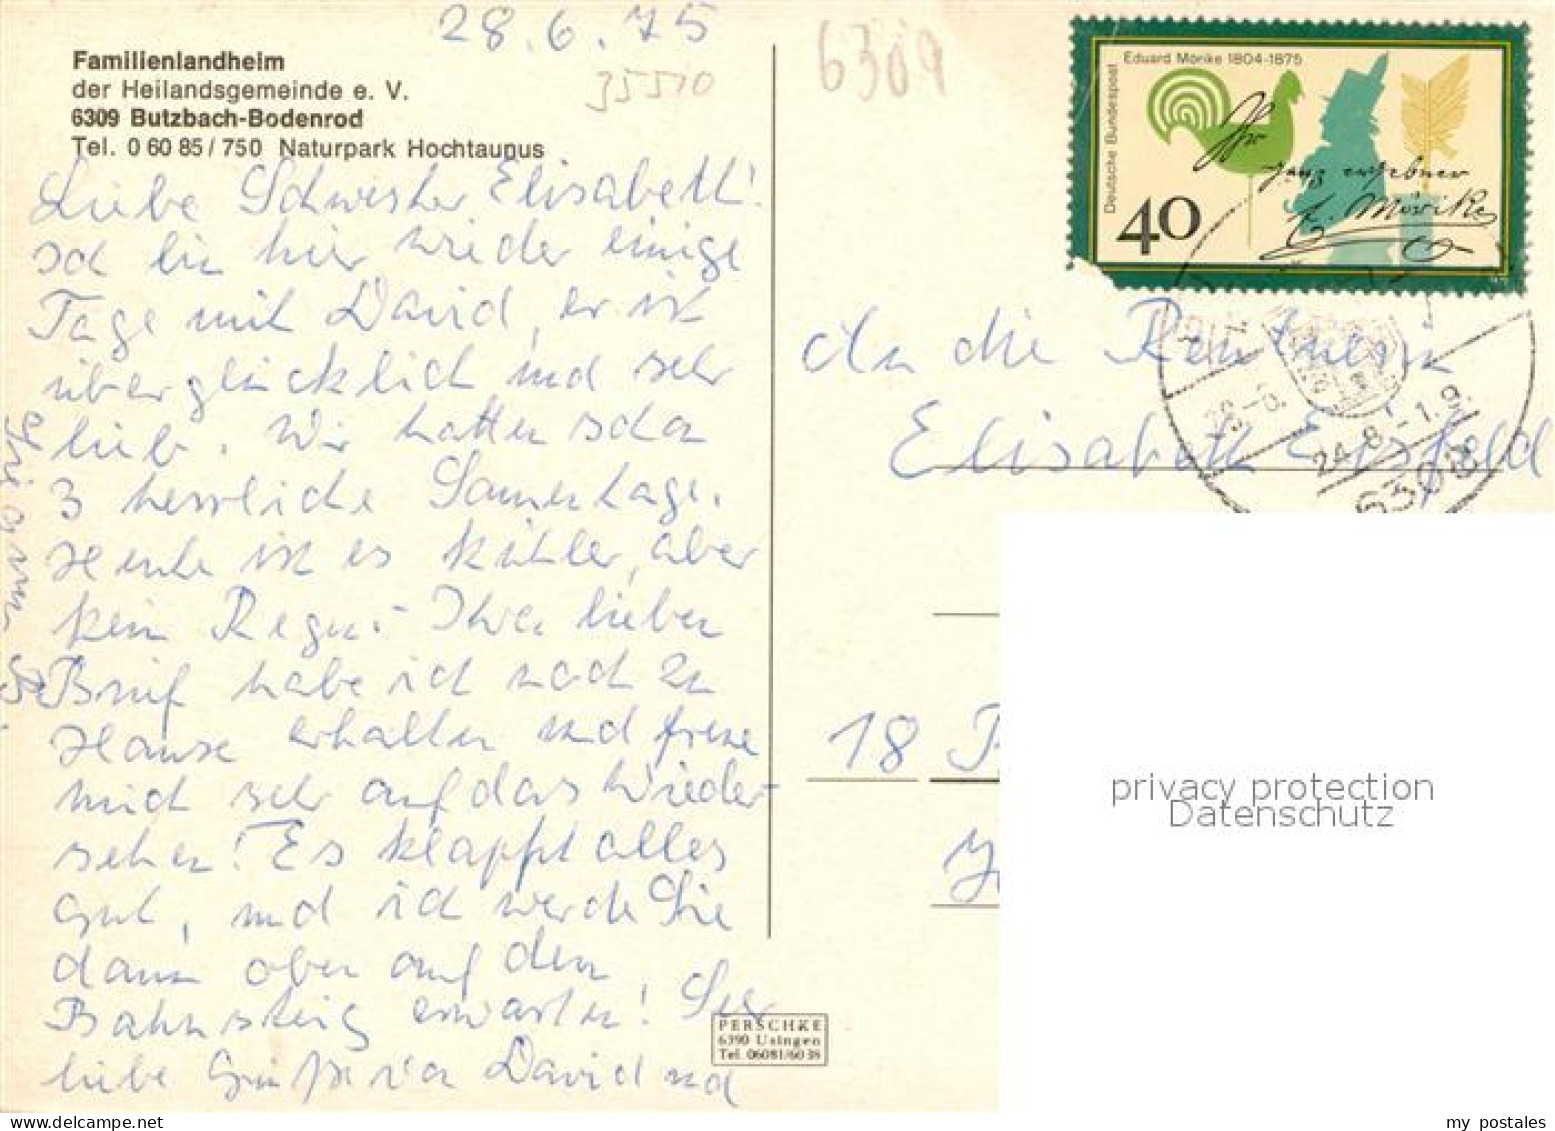 28.6.75
35510
6309
Familienlandheim
der Heilandsgemeinde e. V.
6309 Butzbach-Bodenrod
Tel. 0 60 85 / 750 Naturpark Hochtaunus
Liebe Schwester Elisabeth!
ich bin hier wieder einige
Tage mit David, er ist
überglücklich und sehr
lieb. Wir hatten schon
3 herrliche Sonnentage.
Heute ist es kühler, aber
kein Regen. Ihren lieben
Brief habe ich noch zu
Hause erhalten und freue
mich sehr auf das Wieder-
sehen! Es klappt alles
gut, und ich werde Sie
dann oben auf den
Bahnsteig erwarten! Sehr
liebe Grüße von David und
PERSCHKE
6390 Usingen
Tel. 06081/6038
Eduard Mörike 1804-1875
Deutsche Bundespost
40
Ihr
ganz ergebner
E. Mörike
An die Rentnerin
Elisabeth Eisfeld
24.8.-1.9.
6308
18
privacy protection
Datenschutz
my postales